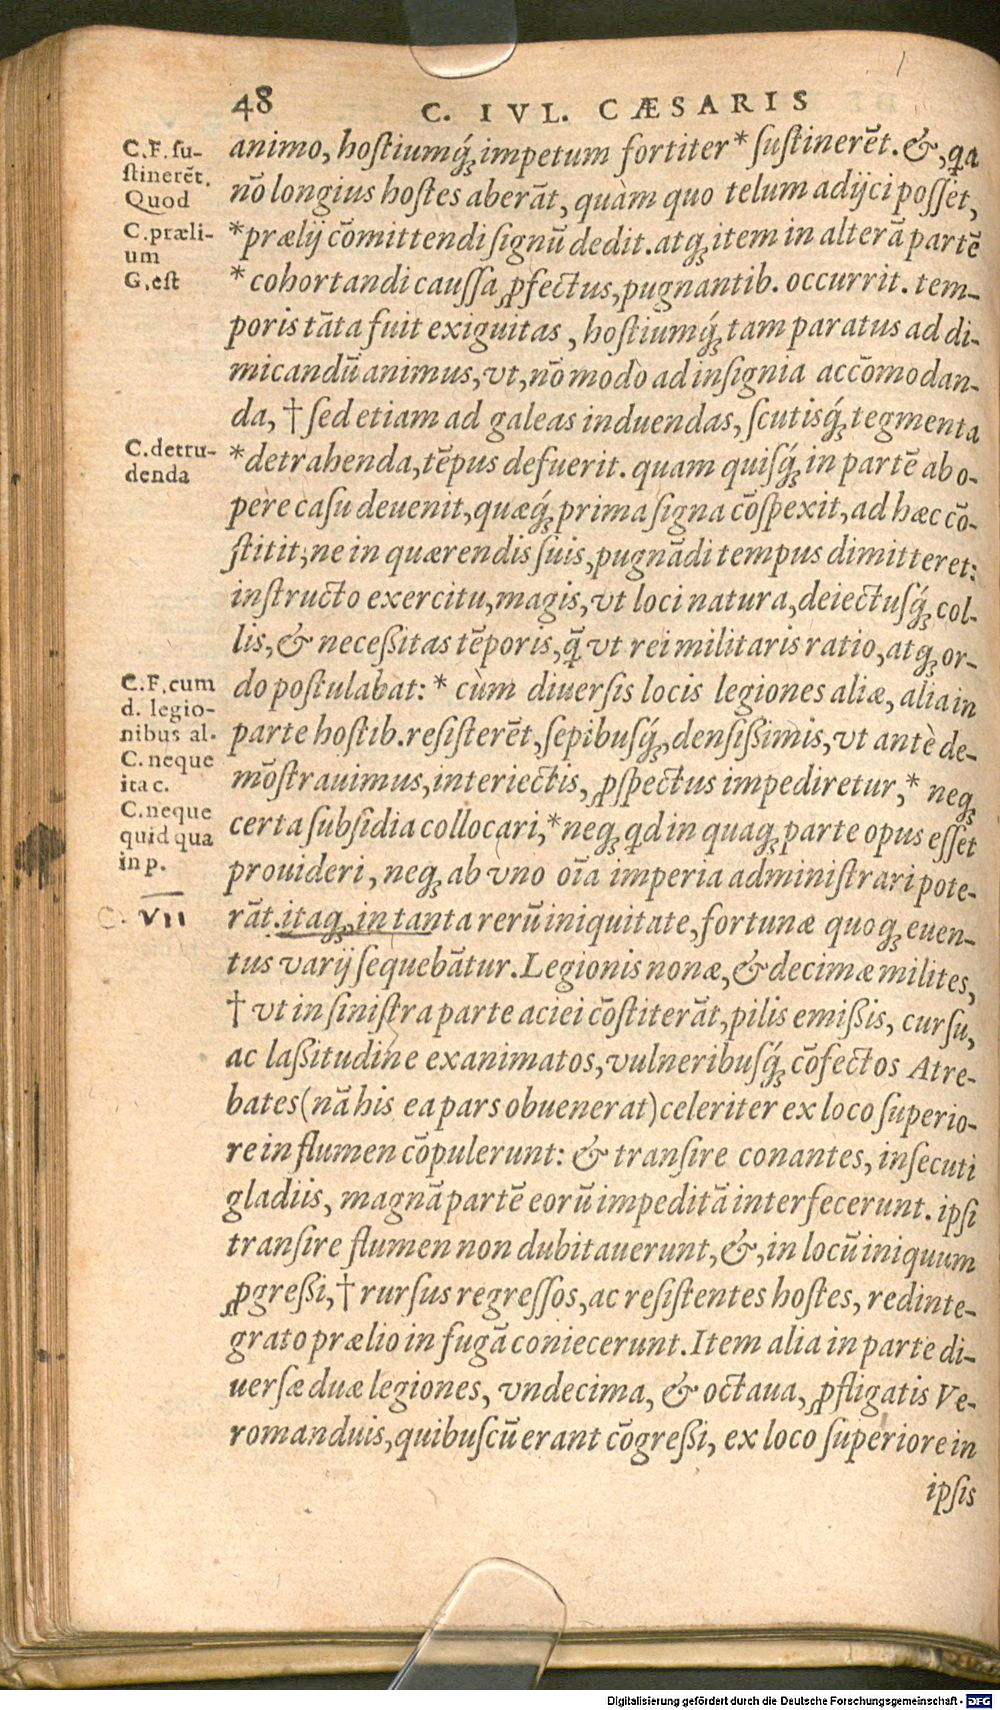 48 C. IVL. CÆSARIS
animo, hostiumq́; impetum fortiter * sustinerēt. &, qa
nō longius hostes aberāt, quàm quo telum adijci posset,
* prælij cōmittendi signū dedit. atq; item in alterā partē
* cohortandi caussa ꝓfectus, pugnantib. occurrit. tem-
poris tāta fuit exiguitas, hostiumq́; tam paratus ad di-
micandū animus, vt, nō modò ad insignia accōmodan-
da, † sed etiam ad galeas induendas, scutisq́; tegmenta
* detrahenda, tēpus defuerit. quam quisq́; in partē ab o-
pere casu deuenit, quæq́; prima signa cōspexit, ad hæc cō-
stitit; ne in quærendis suis, pugnādi tempus dimitteret:
instructo exercitu, magis, vt loci natura, deiectusq́; col-
lis, & necessitas tēporis, q̄ vt rei militaris ratio, atq; or-
do postulabat: * cùm diuersis locis legiones aliæ, alia in
parte hostib. resisterēt, sepibusq́; densissimis, vt antè de-
mōstrauimus, interiectis, ꝓspectus impediretur, * neq;
certa subsidia collocari, * neq; qd in quaq; parte opus esset
prouideri, neq; ab vno oīa imperia administrari pote-
rāt. itaq; in tanta rerū iniquitate, fortunæ quoq; euen-
tus varij sequebātur. Legionis nonæ, & decimæ milites,
† vt in sinistra parte aciei cōstiterāt, pilis emissis, cursu,
ac lassitudine exanimatos, vulneribusq́; cōfectos Atre-
bates (nā his ea pars obuenerat) celeriter ex loco superio-
re in flumen cōpulerunt: & transire conantes, insecuti
gladiis, magnā partē eorū impeditā interfecerunt. ipsi
transire flumen non dubitauerunt, &, in locū iniquum
ꝓgressi, † rursus regressos, ac resistentes hostes, redinte-
grato prælio in fugā coniecerunt. Item alia in parte di-
uersæ duæ legiones, vndecima, & octaua, ꝓfligatis Ve-
romanduis, quibuscū erant cōgressi, ex loco superiore in
ipsis
C.F. su-
stinerēt.
Quod
C. præli-
um
G. est
C. detru-
denda
C.F. cum
d. legio-
nibus al.
C. neque
ita c.
C. neque
quid qua
in p.
C. VII
Digitalisierung gefördert durch die Deutsche Forschungsgemeinschaft - DFG